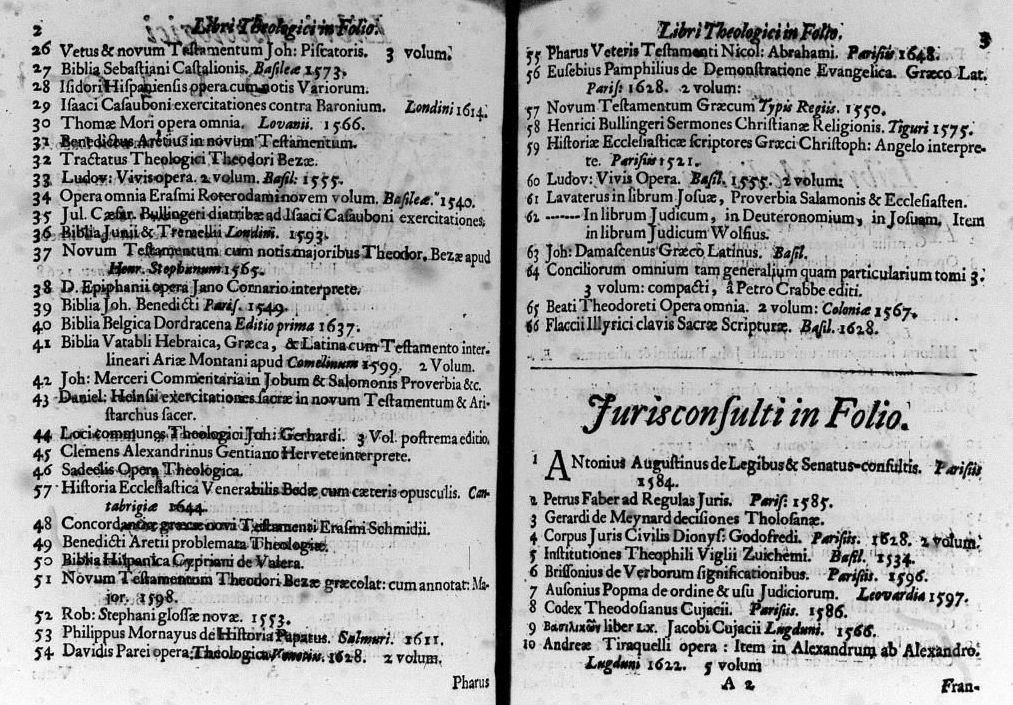 2
Libri Theologici in Folio.
26 Vetus & novum Testamentum Joh: Piſcatoris. 3 volum.
27 Biblia Sebaſtiani Caſtalionis. Baſileæ 1573.
28 Iſidori Hiſpanienſis opera cum notis Variorum.
29 Iſaaci Caſauboni exercitationes contra Baronium. Londini 1614.
30 Thomæ Mori opera omnia. Lovanii. 1566.
31 Benedictus Aretius in novum Teſtamentum.
32 Tractatus Theologici Theodori Bezæ.
33 Ludov: Vivis opera. 2 volum. Baſil: 1555.
34 Opera omnia Eraſmi Roterodami novem volum. Baſileæ. 1540.
35 Jul. Cæſar. Bullingeri diatribæ ad Iſaaci Caſauboni exercitationes,
36 Biblia Junii & Tremellii Londini. 1593.
37 Novum Teſtamentum cum notis majoribus Theodor. Bezæ apud
Henr. Stephanum 1565.
38 D. Epiphanii opera Jano Cornario interprete.
39 Biblia Joh. Benedicti Pariſ. 1549.
40 Biblia Belgica Dordracena Editio prima 1637.
41 Biblia Vatabli Hebraica, Græca, & Latina cum Teſtamento inter-
lineari Ariæ Montani apud Comelinum 1599. 2 Volum.
42 Joh: Merceri Commentaria in Jobum & Salomonis Proverbia &c.
43 Daniel: Heinſii exercitationes ſacræ in novum Teſtamentum & Ari-
ſtarchus ſacer.
44 Loci communes Theologici Joh: Gerhardi. 3 Vol. poſtrema editio.
45 Clemens Alexandrinus Gentiano Hervete interprete.
46 Sadeelis Opera Theologica.
57 Hiſtoria Eccleſiaſtica Venerabilis Bedæ cum cæteris opusculis. Can-
tabrigiæ 1644.
48 Concordantiæ græcæ novi Teſtamenti Eraſmi Schmidii.
49 Benedicti Aretii problemata Theologiæ.
50 Biblia Hiſpanica Cypriani de Valera.
51 Novum Teſtamentum Theodori Bezæ græcolat: cum annotat: Ma-
jor. 1598.
52 Rob: Stephani gloſſæ novæ. 1553.
53 Philippus Mornayus de Hiſtoria Papatus. Salmuri. 1611.
54 Davidis Parei opera Theologica 1628. 2 volum.
Pharus
Libri Theologici in Folio.
3
55 Pharus Veteris Teſtamenti Nicol: Abrahami. Pariſiis 1648.
56 Euſebius Pamphilius de Demonſtratione Evangelica. Græco Lat.
Pariſ: 1628. 2 volum:
57 Novum Teſtamentum Græcum Typis Regiis. 1550.
58 Henrici Bullingeri Sermones Chriſtianæ Religionis. Tiguri 1575.
59 Hiſtoriæ Eccleſiaſticæ ſcriptores Græci Chriſtoph: Angelo interpre-
te. Pariſiis 1521.
60 Ludov: Vivis Opera. Baſil. 1555. 2 volum:
61 Lavaterus in librum Joſuæ, Proverbia Salamonis & Eccleſiaſten.
62 ------- In librum Judicum, in Deuteronomium, in Joſuam, Item
in librum Judicum Wolfius.
63 Joh: Damaſcenus Græco Latinus. Baſil.
64 Conciliorum omnium tam generalium quam particularium tomi 3.
3 volum: compacti, â Petro Crabbe editi.
65 Beati Theodoreti Opera omnia. 2 volum: Coloniæ 1567.
66 Flaccii Illyrici clavis Sacræ Scripturæ. Baſil. 1628.
Jurisconſulti in Folio.
1 ANtonius Auguſtinus de Legibus & Senatus-conſultis. Pariſiis
1584.
2 Petrus Faber ad Regulas Juris. Pariſ: 1585.
3 Gerardi de Meynard deciſiones Tholoſanæ.
4 Corpus Juris Civilis Dionyſ: Godofredi. Pariſiis. 1628. 2 volum.
5 Inſtitutiones Theophili Viglii Zuichemi. Baſil. 1534.
6 Briſſonius de Verborum ſignificationibus. Pariſiis. 1596.
7 Auſonius Popma de ordine & uſu Judiciorum. Leovardiæ 1597.
8 Codex Theodoſianus Cujacii. Pariſiis. 1586.
9 Βασιλικῶν liber LX. Jacobi Cujacii Lugduni. 1566.
10 Andreæ Tiraquelli opera : Item in Alexandrum ab Alexandro.
Lugduni 1622. 5 volum
A 2
Fran-